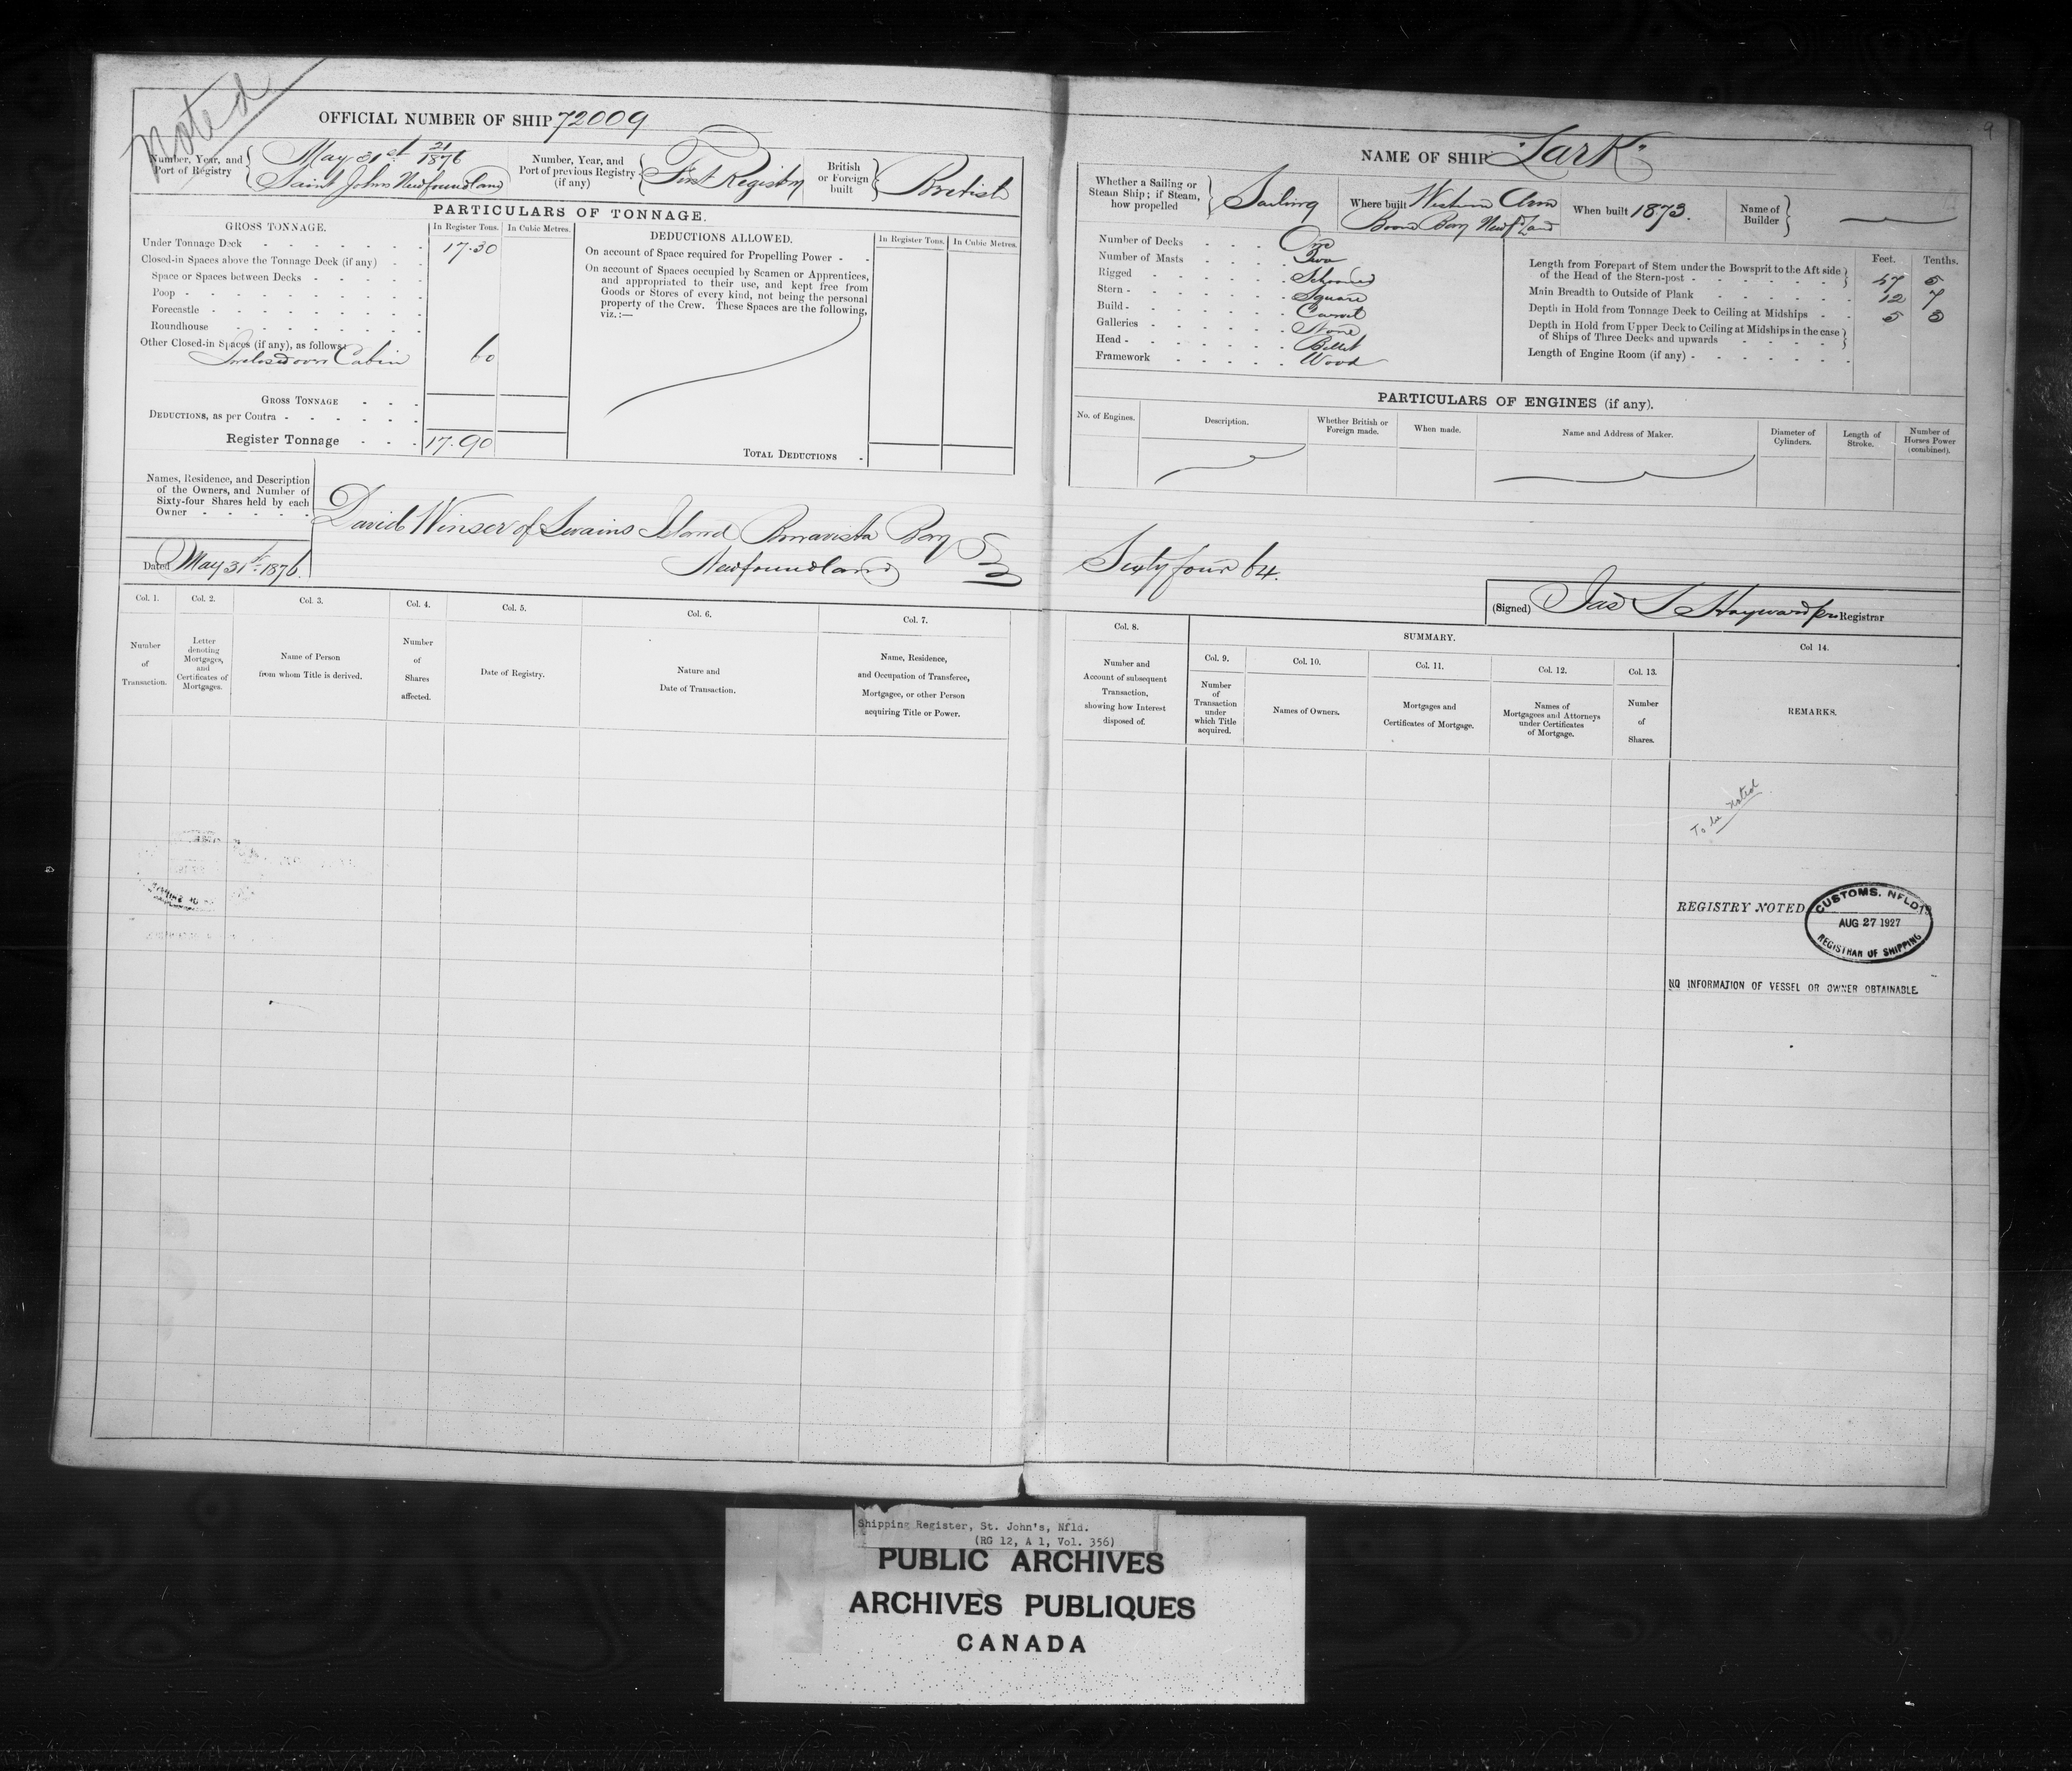 Noted
OFFICIAL NUMBER OF SHIP 72009
Number, Year, and Port of Registry
May 31st 21/1876
Saint Johns Newfoundland
Number, Year, and Port of previous Registry (if any)
First Registry
British or Foreign built
British
PARTICULARS OF TONNAGE.
GROSS TONNAGE.
In Register Tons.
In Cubic Metres.
Under Tonnage Deck 17.30
Closed-in Spaces above the Tonnage Deck (if any)
Space or Spaces between Decks
Poop
Forecastle
Roundhouse
Other Closed-in Spaces (if any), as follows:
Cabin 60
GROSS TONNAGE
DEDUCTIONS, as per Contra
Register Tonnage 17.90
DEDUCTIONS ALLOWED.
In Register Tons.
In Cubic Metres.
On account of Space required for Propelling Power
On account of Spaces occupied by Seamen or Apprentices,
and appropriated to their use, and kept free from
Goods or Stores of every kind, not being the personal
property of the Crew. These Spaces are the following,
viz.:—
TOTAL DEDUCTIONS
Names, Residence, and Description
of the Owners, and Number of
Sixty-four Shares held by each
Owner
David Winsor of Swains Island Bonavista Bay
Newfoundland
Dated May 31st 1876.
Col. 1.
Number
of
Transaction.
Col. 2.
Letter
denoting
Mortgages,
and
Certificates of
Mortgages.
Col. 3.
Name of Person
from whom Title is derived.
Col. 4.
Number
of
Shares
affected.
Col. 5.
Date of Registry.
Col. 6.
Nature and
Date of Transaction.
Col. 7.
Name, Residence,
and Occupation of Transferee,
Mortgagee, or other Person
acquiring Title or Power.
9
NAME OF SHIP "Lark"
Whether a Sailing or
Steam Ship; if Steam,
how propelled
Sailing
Where built Western Arm
Bonne Bay Newfd Land
When built 1873.
Name of
Builder
Number of Decks One
Number of Masts Two
Rigged Schooner
Stern Square
Build Carvel
Galleries None
Head Billet
Framework Wood
Feet. Tenths.
Length from Forepart of Stem under the Bowsprit to the Aft side
of the Head of the Stern-post 47 5
Main Breadth to Outside of Plank 12 7
Depth in Hold from Tonnage Deck to Ceiling at Midships 5 3
Depth in Hold from Upper Deck to Ceiling at Midships in the case
of Ships of Three Decks and upwards
Length of Engine Room (if any)
PARTICULARS OF ENGINES (if any).
No. of Engines.
Description.
Whether British or
Foreign made.
When made.
Name and Address of Maker.
Diameter of
Cylinders.
Length of
Stroke.
Number of
Horses Power
(combined).
Sixty four 64.
(Signed) Jas S Hayward pro Registrar
Col. 8.
Number and
Account of subsequent
Transaction,
showing how Interest
disposed of.
SUMMARY.
Col. 9.
Number
of
Transaction
under
which Title
acquired.
Col. 10.
Names of Owners.
Col. 11.
Mortgages and
Certificates of Mortgage.
Col. 12.
Names of
Mortgagees and Attorneys
under Certificates
of Mortgage.
Col. 13.
Number
of
Shares.
Col 14.
REMARKS.
To be noted
REGISTRY NOTED
CUSTOMS. NFLD
AUG 27 1927
REGISTRAR OF SHIPPING
NO INFORMATION OF VESSEL OR OWNER OBTAINABLE
Shipping Register, St. John's, Nfld.
(RG 12, A 1, Vol. 356)
PUBLIC ARCHIVES
ARCHIVES PUBLIQUES
CANADA